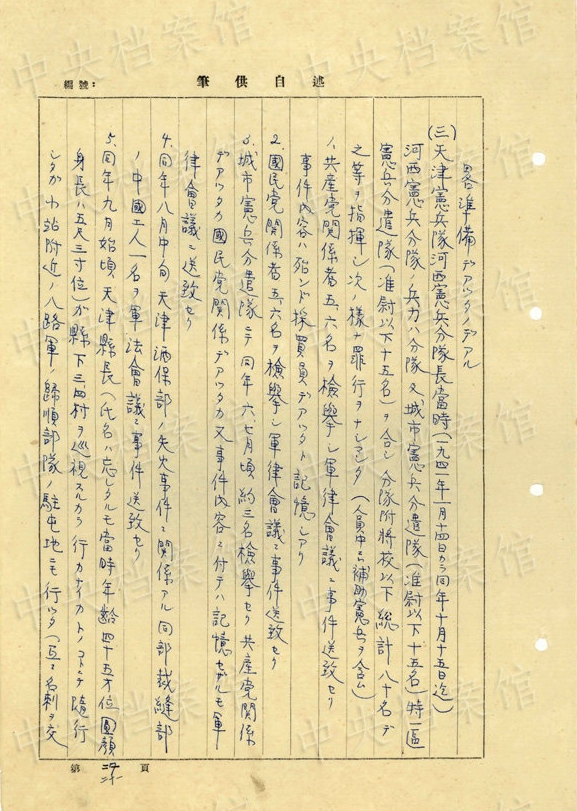 中央档案馆
編號：
筆供自述
畧準備デアツタノデアル
(三)天津憲兵隊河西憲兵分隊長當時(一九四一年一月十四日カラ同年十月十五日迄)
河西憲兵分隊ノ兵力ハ分隊ノ外城市憲兵分遣隊(准尉以下十五名)特一區
憲兵分遣隊(准尉以下十五名)ヲ合シ分隊附將校以下總計八十名デ
之等ヲ指揮シ次ノ様ナ罪行ヲナシアンタ(人員中ニハ補助憲兵ヲ含ム)
1、共産党関係者五、六名ヲ檢擧シ軍律會議ニ事件送致セリ
事件内容ハ殆ンド採買員デアツタト記憶シアリ
2、國民党関係者五、六名ヲ檢擧シ軍律會議ニ事件送致セリ
3、城市憲兵分遣隊ニテ同年六、七月頃約三名檢擧セリ共産党関係
デアツタカ國民党関係デアツタカ又事件内容ニ付テハ記憶セザルモ軍
律會議ニ送致セリ
4、同年八月中旬天津酒保部ノ失火事件ニ関係アル同部裁縫部
ノ中國工人一名ヲ軍法會議ニ事件送致セリ
5、同年九月始頃天津縣長(氏名ハ忘レタルモ當時年齢四十五才位圓顔
身長ハ五尺三寸位)ガ縣下三、四村ヲ巡視スルカラ行カナイカトノコトデ隨行
シタガ小站附近ノ八路軍ノ歸順部隊ノ駐屯地ニモ行ツタ(互ニ名刺ヲ交
第 頁